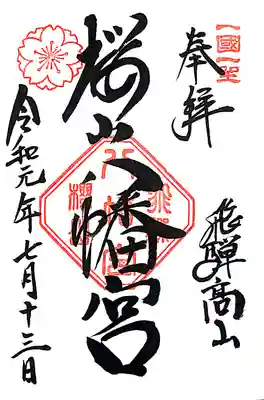 一國一社
奉拝
飛騨高山
桜山八幡宮
令和元年七月十三日